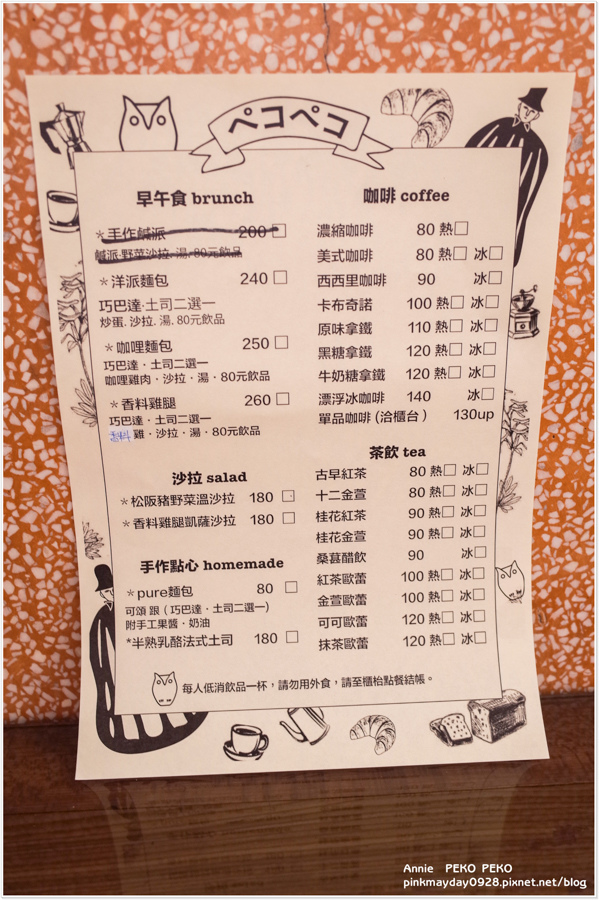 ペコペコ
早午食 brunch
＊手作鹹派 200 □
鹹派.野菜沙拉.湯.80元飲品
＊洋派麵包 240 □
巧巴達·土司二選一
炒蛋.沙拉.湯.80元飲品
＊咖哩麵包 250 □
巧巴達·土司二選一
咖哩雞肉·沙拉·湯·80元飲品
＊香料雞腿 260 □
巧巴達·土司二選一
香料雞·沙拉·湯·80元飲品
沙拉 salad
＊松阪豬野菜溫沙拉 180 □
＊香料雞腿凱薩沙拉 180 □
手作點心 homemade
＊pure麵包 80 □
可頌 跟 (巧巴達·土司二選一)
附手工果醬·奶油
*半熟乳酪法式土司 180 □
咖啡 coffee
濃縮咖啡 80 熱□
美式咖啡 80 熱□ 冰□
西西里咖啡 90 冰□
卡布奇諾 100 熱□ 冰□
原味拿鐵 110 熱□ 冰□
黑糖拿鐵 120 熱□ 冰□
牛奶糖拿鐵 120 熱□ 冰□
漂浮冰咖啡 140 冰□
單品咖啡 (洽櫃台) 130up
茶飲 tea
古早紅茶 80 熱□ 冰□
十二金萱 80 熱□ 冰□
桂花紅茶 90 熱□ 冰□
桂花金萱 90 熱□ 冰□
桑葚醋飲 90 冰□
紅茶歐蕾 100 熱□ 冰□
金萱歐蕾 100 熱□ 冰□
可可歐蕾 120 熱□ 冰□
抹茶歐蕾 120 熱□ 冰□
每人低消飲品一杯，請勿用外食，請至櫃枱點餐結帳。
Annie PEKO PEKO
pinkmayday0928.pixnet.net/blog